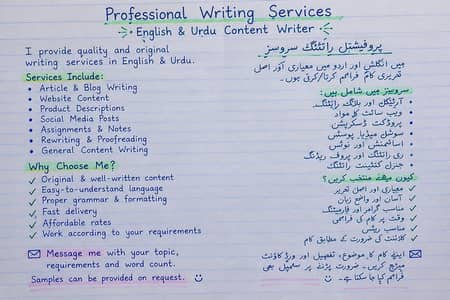 Professional Writing Services
English & Urdu Content Writer
I provide quality and original
writing services in English & Urdu.
Services Include:
• Article & Blog Writing
• Website Content
• Product Descriptions
• Social Media Posts
• Assignments & Notes
• Rewriting & Proofreading
• General Content Writing
Why Choose Me?
✓ Original & well-written content
✓ Easy-to-understand language
✓ Proper grammar & formatting
✓ Fast delivery
✓ Affordable rates
✓ Work according to your requirements
Message me with your topic,
requirements and word count.
Samples can be provided on request.
پروفیشنل رائٹنگ سروسز
میں انگلش اور اردو میں معیاری اور اصل
تحریری کام فراہم کرتا/کرتی ہوں۔
سروسز میں شامل ہیں:
• آرٹیکل اور بلاگ رائٹنگ
• ویب سائٹ کا مواد
• پروڈکٹ ڈسکرپشن
• سوشل میڈیا پوسٹس
• اسائنمنٹس اور نوٹس
• ری رائٹنگ اور پروف ریڈنگ
• جنرل کنٹینٹ رائٹنگ
کیوں مجھے منتخب کریں؟
✓ معیاری اور اصل تحریر
✓ آسان اور واضح زبان
✓ مناسب گرامر اور فارمیٹنگ
✓ وقت پر کام کی فراہمی
✓ مناسب ریٹس
✓ کلائنٹ کی ضرورت کے مطابق کام
اپنے کام کا موضوع، تفصیل اور ورڈ کاؤنٹ
میسج کریں۔ ضرورت پڑنے پر سیمپل بھی
فراہم کیا جا سکتا ہے۔